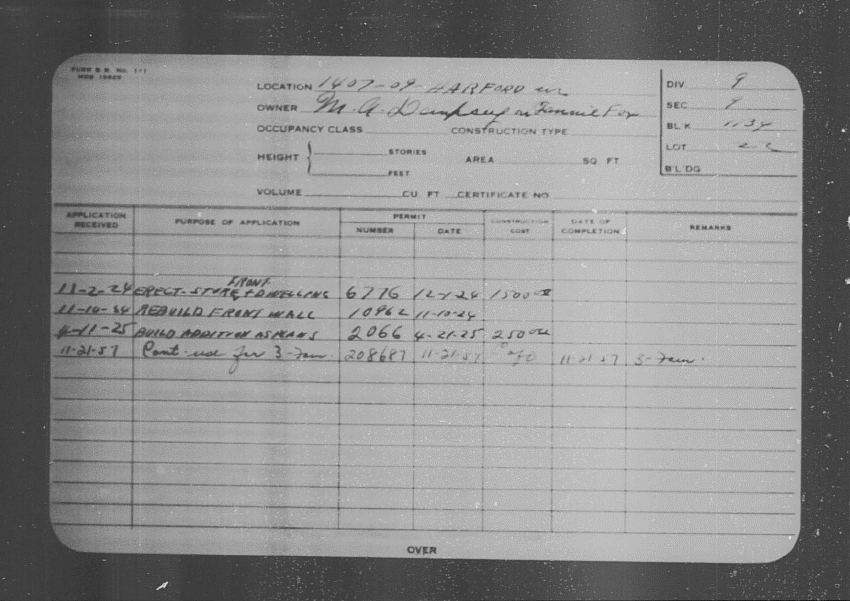 FORM B.E. No. 1-1
LOCATION 1407-09-HARFORD av
OWNER M. A. Dempsey or Fannie Fox
OCCUPANCY CLASS CONSTRUCTION TYPE
HEIGHT STORIES FEET AREA SQ FT
VOLUME CU. FT CERTIFICATE NO
DIV 9
SEC 9
BL'K 1134
LOT 22
B'L'DG
APPLICATION RECEIVED PURPOSE OF APPLICATION PERMIT NUMBER DATE CONSTRUCTION COST DATE OF COMPLETION REMARKS
FRONT
11-2-24 ERECT-STORE + DWELLING 6776 12-1-24 1500 00
11-10-24 REBUILD FRONT WALL 10962 11-10-24
4-11-25 BUILD ADDITION AS PLANS 2066 4-21-25 250 00
11-21-57 Cont-use for 3-Fam. 208687 11-21-57 11-21-57 3-Fam.
OVER